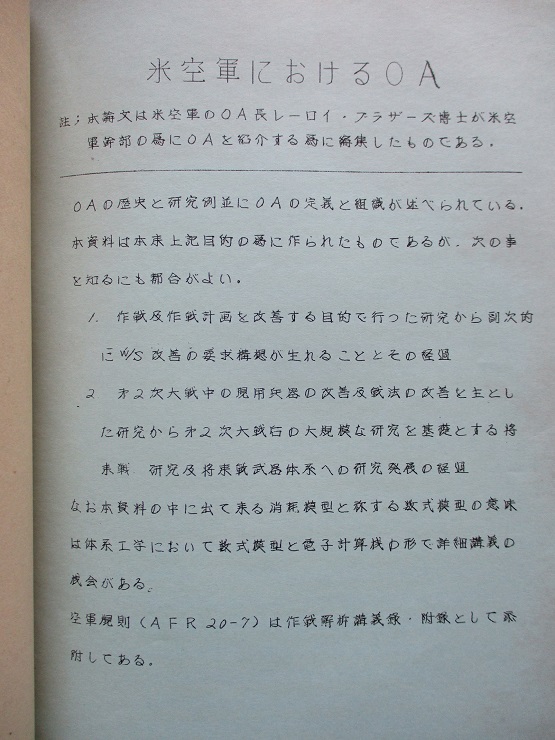 米空軍におけるOA
註；本論文は米空軍のOA長レーロイ・ブラザーズ博士が米空
軍幹部の為にOAを紹介する為に編集したものである．
OAの歴史と研究例並にOAの定義と組織が述べられている．
本資料は本来上記目的の為に作られたものであるが．次の事
を知るにも都合がよい．
1. 作戦及作戦計画を改善する目的で行った研究から副次的
にW/S改善の要求構想が生れることとその経過
2 才2次大戦中の現用兵器の改善及戦法の改善を主とし
た研究から才2次大戦后の大規模な研究を基礎とする将
来戦 研究及将来戦武器体系への研究発展の経過
なお本資料の中に出て来る消耗模型と称する数式模型の意味
は体系工学において数式模型と電子計算機の形で詳細講義の
機会がある．
空軍規則（AFR 20-7）は作戦解析講義録・附録として添
附してある．